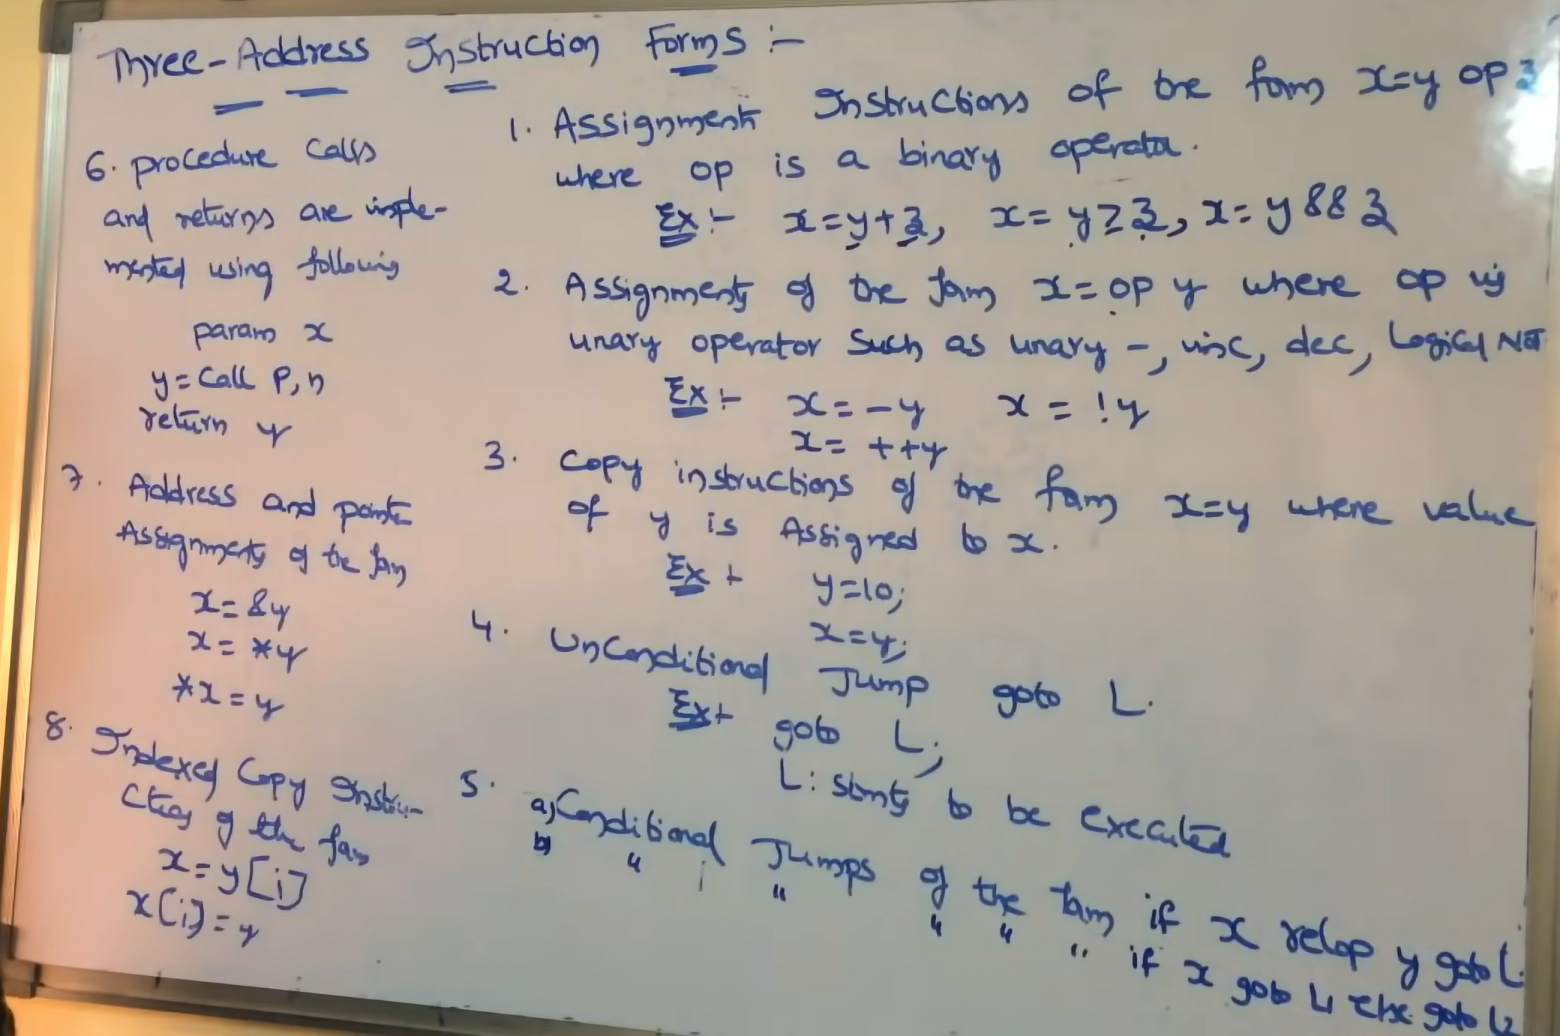 Three-Address Instruction Forms :-
1. Assignment Instructions of the form x=y op z
where op is a binary operator.
Ex :- x=y+z, x= y≥z, x= y && z
2. Assignments of the form x= op y where op is
unary operator such as unary -, inc, dec, Logical NOT
Ex :- x= -y x = !y
x= ++y
3. Copy instructions of the form x=y where value
of y is Assigned to x.
Ex :- y=10;
x=y;
4. Unconditional Jump goto L.
Ex :- goto L;
L: stmts to be executed
5. a) Conditional Jumps of the form if x relop y goto L.
b) " " " " " if x goto L1 else goto L2
6. procedure calls
and returns are imple-
mented using following
param x
y= Call P, n
return y
7. Address and pointer
Assignments of the form
x= &y
x= *y
*x = y
8. Indexed Copy Instru-
ctions of the form
x= y[i]
x[i] = y